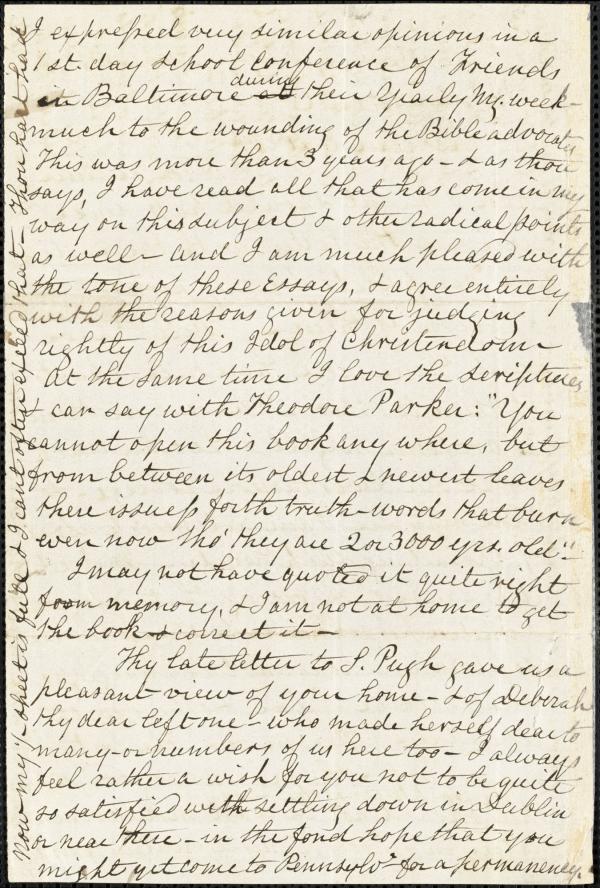 I expressed very similar opinions in a
1st. day school Conference of Friends
in Baltimore during their Yearly Mg. week -
much to the wounding of the Bible advocates
This was more than 3 years ago - & as thou
says, I have read all that has come in my
way on this subject & other radical points
as well - and I am much pleased with
the tone of these Essays, & agree entirely
with the reasons given for judging
rightly of this Idol of Christendom -
At the same time I love the scriptures
& can say with Theodore Parker: "You
cannot open this book any where, but
from between its oldest & newest leaves
there issues forth truth - words that burn
even now tho' they are 2 or 3000 yrs. old" -
I may not have quoted it quite right
from memory, & I am not at home to get
the book & correct it -
Thy late letter to S. Pugh gave us a
pleasant view of your home - & of Deborah
thy dear left one - who made herself dear to
many - or numbers of us here too - I always
feel rather a wish for you not to be quite
so satisfied with settling down in Dublin
or near there - in the fond hope that you
might yet come to Pennsylva for a permanency.
now my sheet is full & I cant often exceed that - Thou hast had